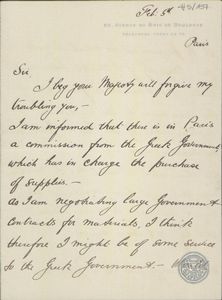 Feb. 5th
Paris
Sir
I beg your Majesty will forgive my
troubling you,—
I am informed that there is in Paris
a commission from the Greek Government,
which has in charge the purchase
of supplies.—
As I am negotiating large Government
contracts for materials, I think
therefore I might be of some service
to the Greek Government.—